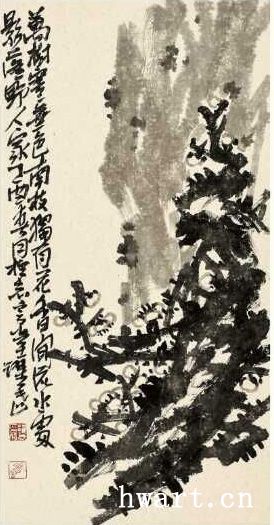 萬樹寒無色南枝獨有花香聞流水處
影落野人家丁酉春
hwart.cn